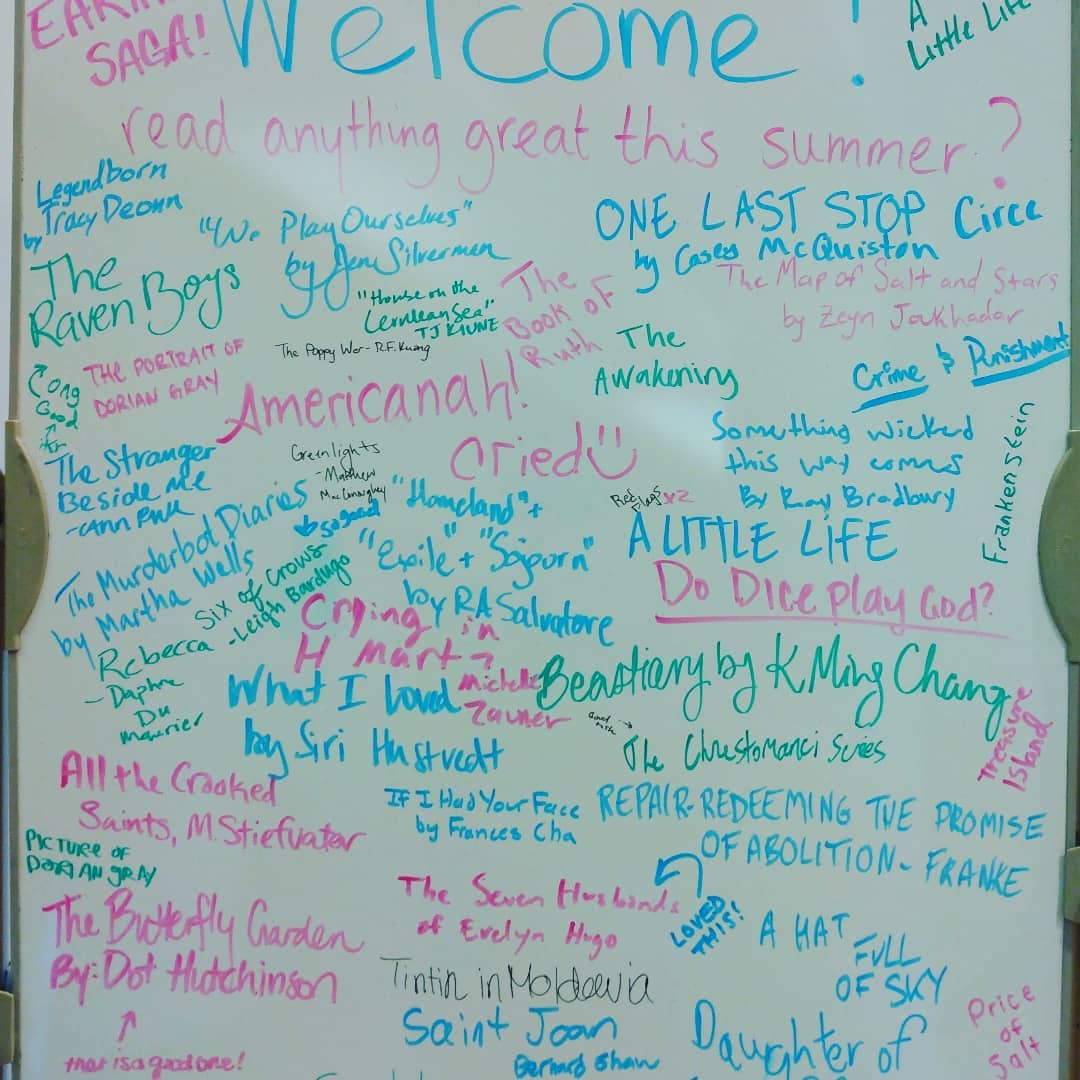 SAGA!
Welcome!
A
Little Life
read anything great this summer?
Legendborn
by Tracy Deonn
"We Play Ourselves"
by Jen Silverman
ONE LAST STOP
by Casey McQuiston
Circe
The
Raven Boys
"House on the
Cerulean Sea"
TJ KLUNE
The
Book of
Ruth
The Map of Salt and Stars
by Zeyn Joukhadar
The Poppy War - R.F. Kuang
The
Awakening
THE PORTRAIT OF
DORIAN GRAY
Good
Americanah!
Crime & Punishment
cried
Something Wicked
this way comes
By Ray Bradbury
Frankenstein
The Stranger
Beside me
Greenlights
- Matthew
"Homeland" +
"Exile" + "Sojourn"
by RA Salvatore
Red Flags x2
A LITTLE LIFE
The Murderbot Diaries
by Martha Wells
so good
Six of Crows
- Leigh Bardugo
Do Dice play God?
Crying in
H mart
Michelle
Zauner
Rebecca
- Daphne
Du
Maurier
What I loved
by Siri Hustvedt
Beastiary by K Ming Chang
The Chrestomanci Series
Treasure
Island
All the Crooked
Saints, M. Stiefvater
If I Had Your Face
by Frances Cha
REPAIR-REDEEMING THE PROMISE
OF ABOLITION - FRANKE
PICTURE OF
DORIAN GRAY
The Seven Husbands
of Evelyn Hugo
LOVED
THIS!
A HAT
FULL
OF SKY
The Butterfly Garden
By: Dot Hutchinson
that is a good one!
Tintin in Moldavia
Saint Joan
Bernard Shaw
Daughter of
Price
of
Salt